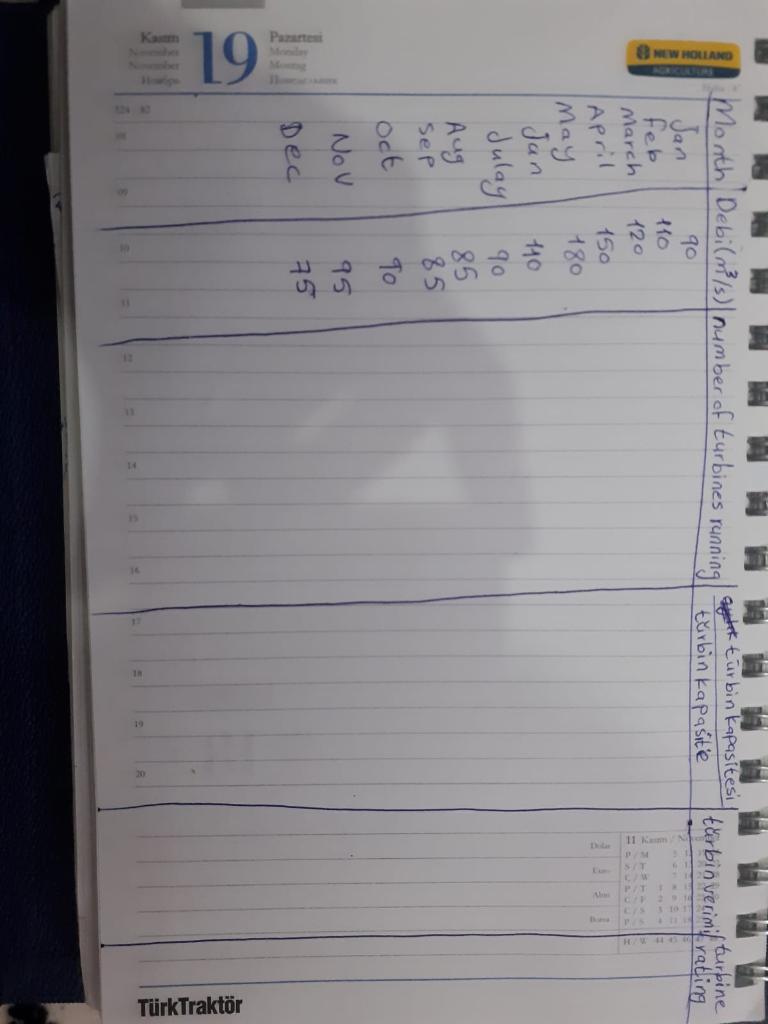 Kasım
November
November
Ноябрь
19
Pazartesi
Monday
Montag
Понедельник
NEW HOLLAND
AGRICULTURE
Month Debi (m³/s) number of turbines running türbin kapasitesi türbin verimi / turbine rating
türbin kapasite
Jan 90
feb 110
March 120
April 150
May 180
Jun 140
Julay 90
Aug 85
Sep 85
Oct 90
Nov 95
Dec 75
324 42
08
09
10
11
12
13
14
15
16
17
18
19
20
Dolar
Euro
Altın
Borsa
11 Kasım /
P / M
S / T
C / W
P / T
C / F
C / S
P / S
H / W 44 45
TürkTraktör